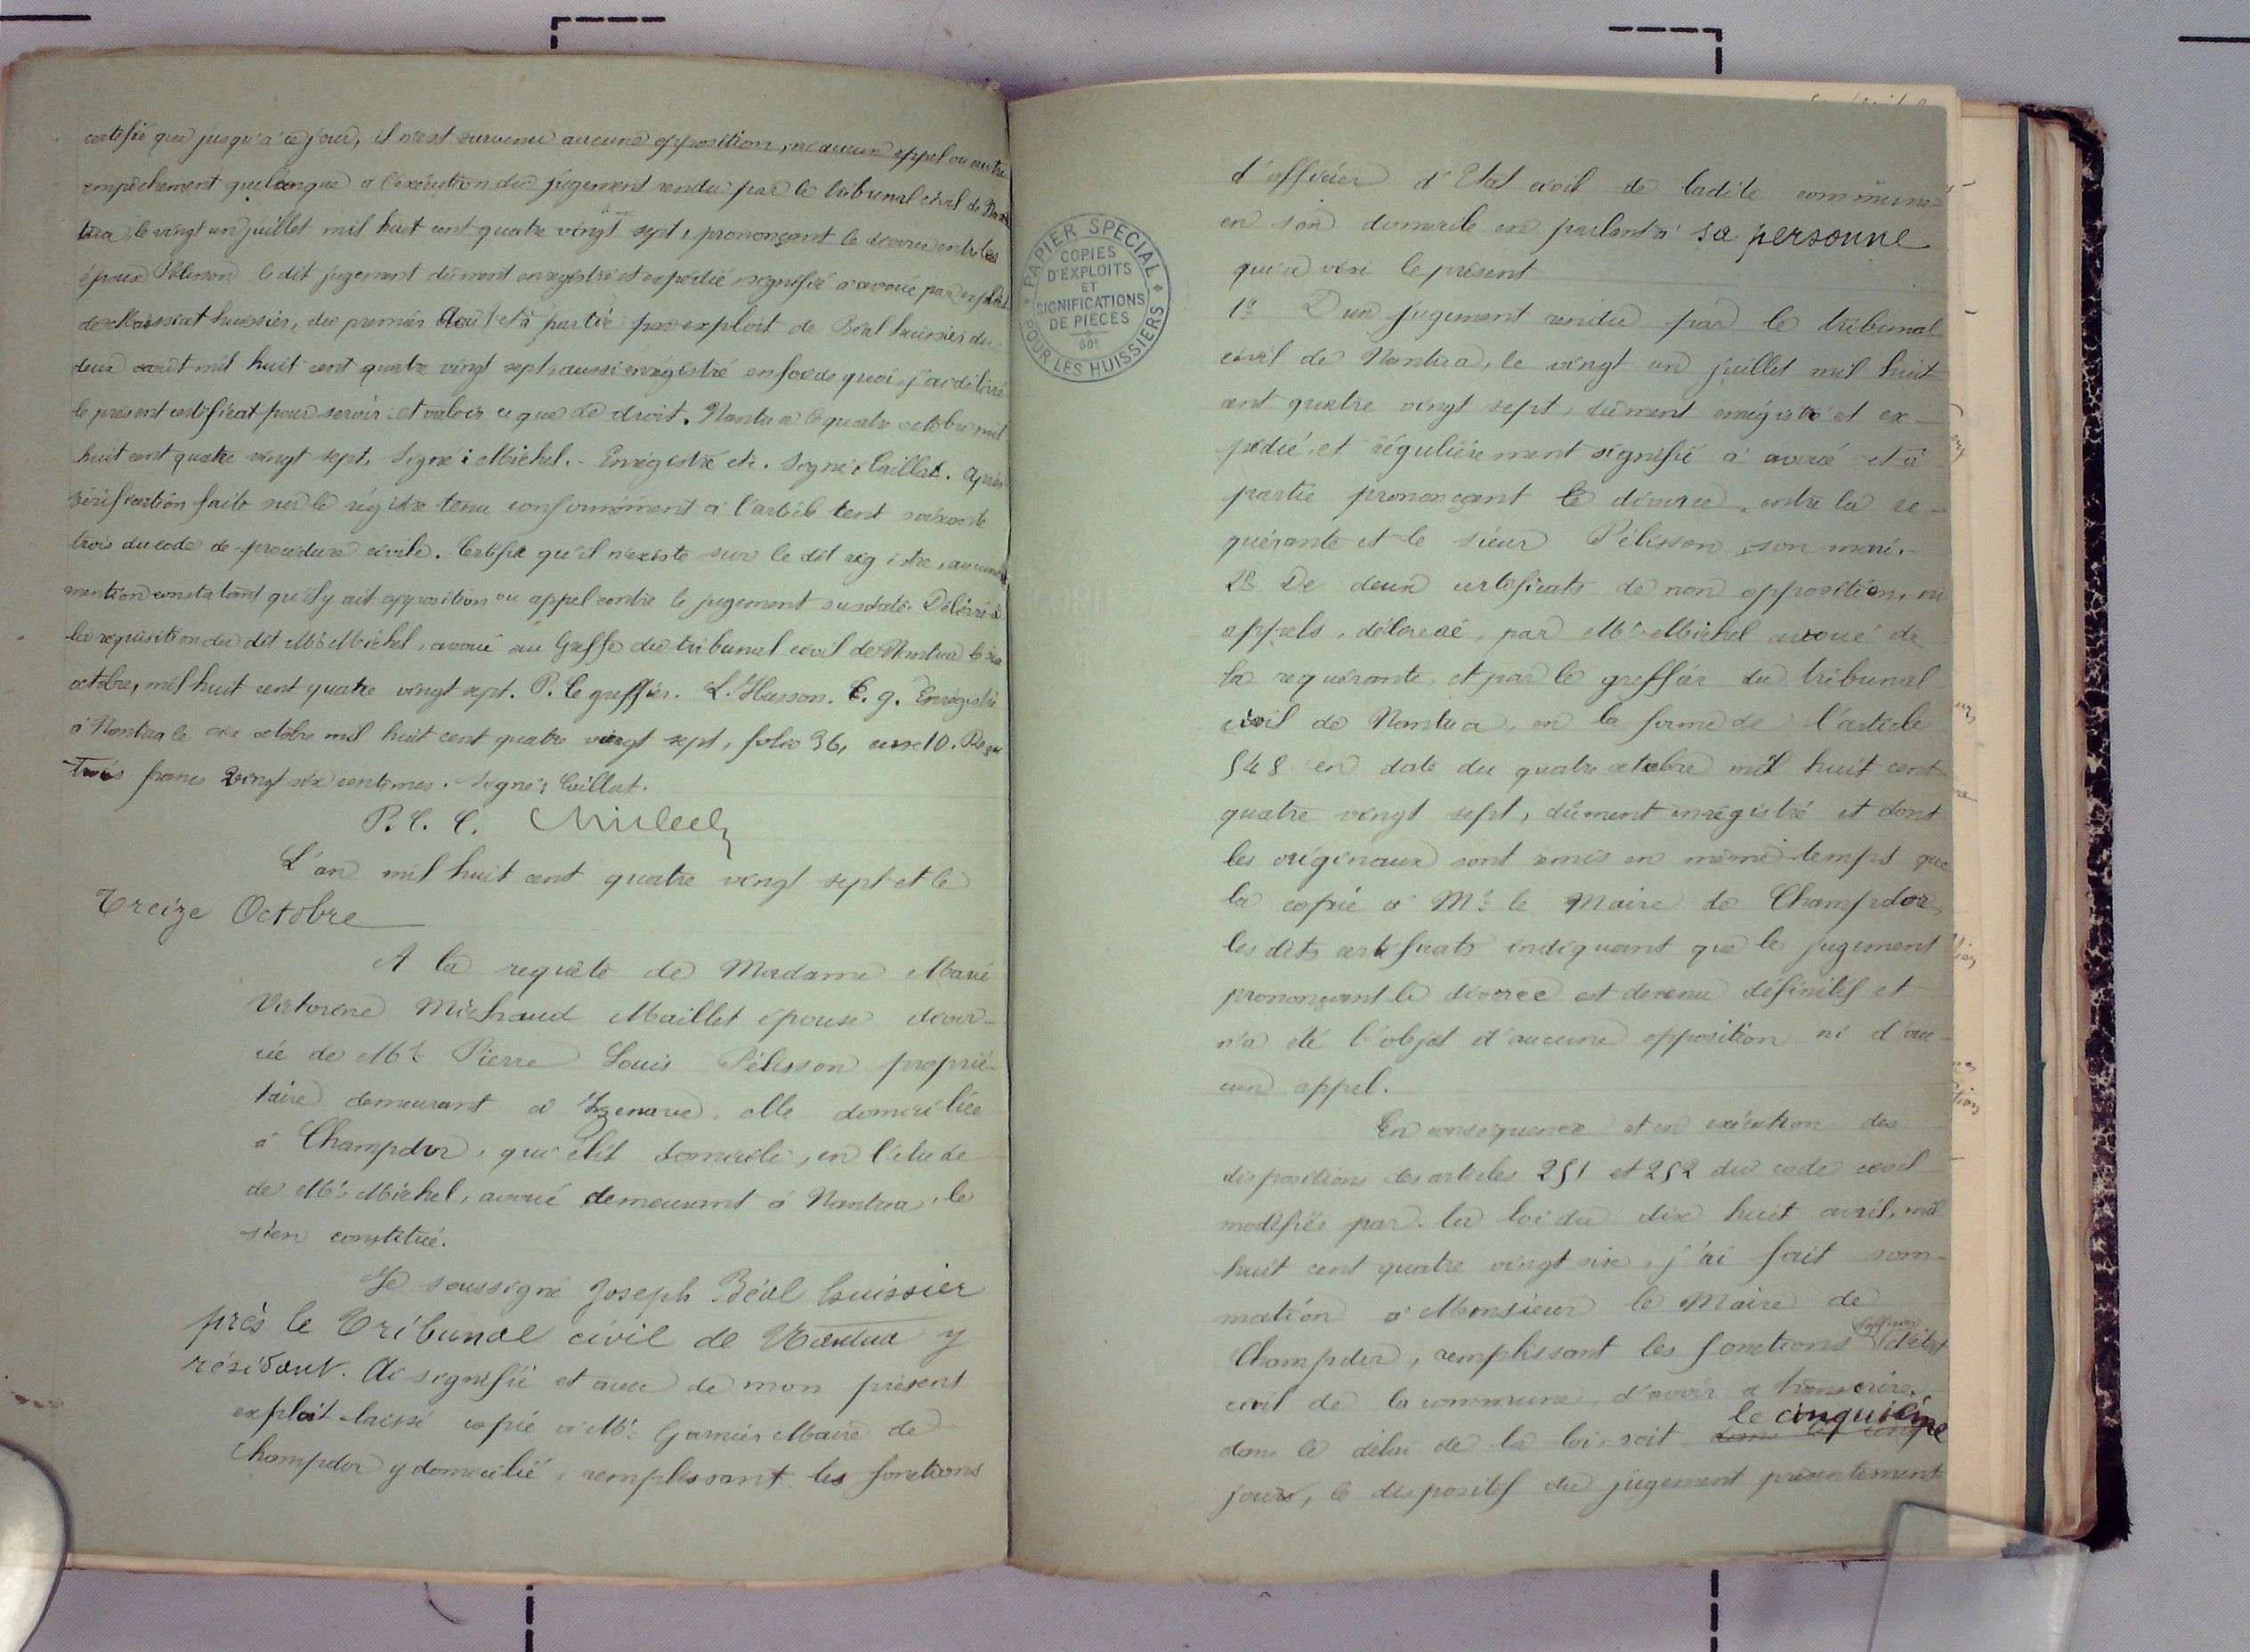 certifié que jusqu'à ce jour, il n'est survenu aucune opposition, ni aucun appel ou autre
empêchement quelconque à l'exécution du jugement rendu par le tribunal civil de Nan
tua, le vingt un juillet mil huit cent quatre vingt sept, prononçant le divorce entre les
époux Pélisson le dit jugement dûment enregistré et expédié signifié à avoué par exploit
de Maissiat huissier, du premier Août et à partie par exploit de Béal huissier du
deux août mil huit cent quatre vingt sept, aussi enrégistré en foi de quoi, j'ai délivré
le présent certificat pour servir et valoir ce que de droit. Nantua le quatre octobre mil
huit cent quatre vingt sept. Signé: Michel. - Enrégistré etc. Signé: Caillat. Après
vérification faite sur le régistre tenu conformément à l'article cent soixante
trois du code de procédure civile. Certifie qu'il n'existe sur le dit registre, aucune
mention constatant qu'il y ait opposition ou appel contre le jugement susdaté. Délivré à
la requisition du dit Me Michel, avoué au Greffe du tribunal civil de Nantua le six
octobre, mil huit cent quatre vingt sept. P. le greffier. L. Husson. C. g. Enrégistré
à Nantua le six octobre mil huit cent quatre vingt sept, folio 36, case 10. Reçu
Trois francs vingt six centimes. Signé: Caillat.
P. C. C. Michel
L'an mil huit cent quatre vingt sept et le
Treize Octobre
A la requête de Madame Marie
Victorine Michaud Maillet épouse divor-
cée de Mr Pierre Louis Pélisson proprié-
taire demeurant à Izenave, elle domiciliée
à Champdor, qui élit domicile, en l'étude
de Me Michel, avoué demeurant à Nantua, le
sien constitué.
Je soussigné Joseph Béal huissier
près le Tribunal civil de Nantua y
résidant. Ai signifié et avec de mon présent
exploit laissé copie à Mr Garnier Maire de
Champdor y domicilié, remplissant les fonctions
PAPIER SPÉCIAL
COPIES
D'EXPLOITS
ET
SIGNIFICATIONS
DE PIÈCES
60c
POUR LES HUISSIERS
d'officier d'Etat civil de ladite commune
en son domicile en parlant à sa personne
qui a visé le présent
1º D'un jugement rendu par le tribunal
civil de Nantua, le vingt un juillet mil huit
cent quatre vingt sept, dûment enrégistré et ex-
pédié, et régulièrement signifié à avoué et à
partie prononçant le divorce, entre la re-
quérante et le sieur Pélisson, son mari.
2º De deux certificats de non opposition, ni
appels, délivré, par Me Michel avoué de
la requérante, et par le greffier du tribunal
civil de Nantua, en la forme de l'article
548 en date du quatre octobre mil huit cent
quatre vingt sept, dûment enrégistré et dont
les originaux sont remis en même temps que
la copie à Mr le Maire de Champdor,
les dits certificats indiquant que le jugement
prononçant le divorce est devenu définitif et
n'a été l'objet d'aucune opposition ni d'au-
cun appel.
En conséquence et en exécution des
dispositions des articles 251 et 252 du code civil
modifiés par la loi du dix huit avril, mil
huit cent quatre vingt six, j'ai fait som-
mation à Monsieur le Maire de
Champdor, remplissant les fonctions d'officier d'état
civil de la commune, d'avoir à transcrire,
dans le délai de la loi, soit le cinquième
jours, le dispositif du jugement présentement